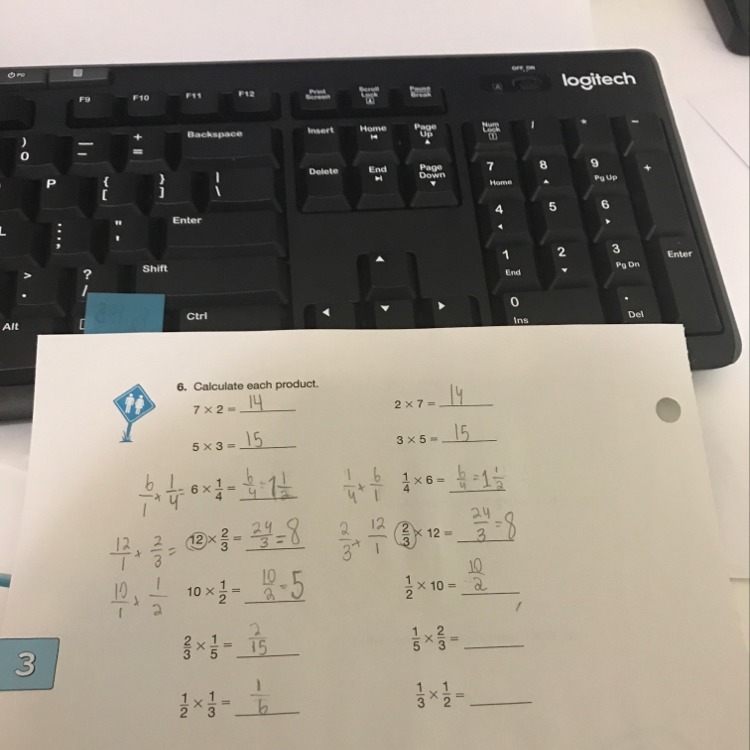 logitech
OFF ON
F9 F10 F11 F12 Print Screen Scroll Lock Pause Break
) 0 — - + = Backspace Insert Home Page Up Num Lock / * -
P { [ } ] | \ Delete End Page Down 7 Home 8 9 Pg Up +
L : ; " ' Enter 4 5 6
> . ? / Shift 1 End 2 3 Pg Dn Enter
Alt Ctrl 0 Ins . Del
6. Calculate each product.
7 × 2 = 14 2 × 7 = 14
5 × 3 = 15 3 × 5 = 15
6/1 × 1/4 = 6 × 1/4 = 6/4 = 1 1/2 1/4 × 6/1 1/4 × 6 = 6/4 = 1 1/2
12/1 × 2/3 = 12 × 2/3 = 24/3 = 8 2/3 × 12/1 2/3 × 12 = 24/3 = 8
10/1 × 1/2 10 × 1/2 = 10/2 = 5 1/2 × 10 = 10/2
2/3 × 1/5 = 2/15 1/5 × 2/3 =
1/2 × 1/3 = 1/6 1/3 × 1/2 =
3